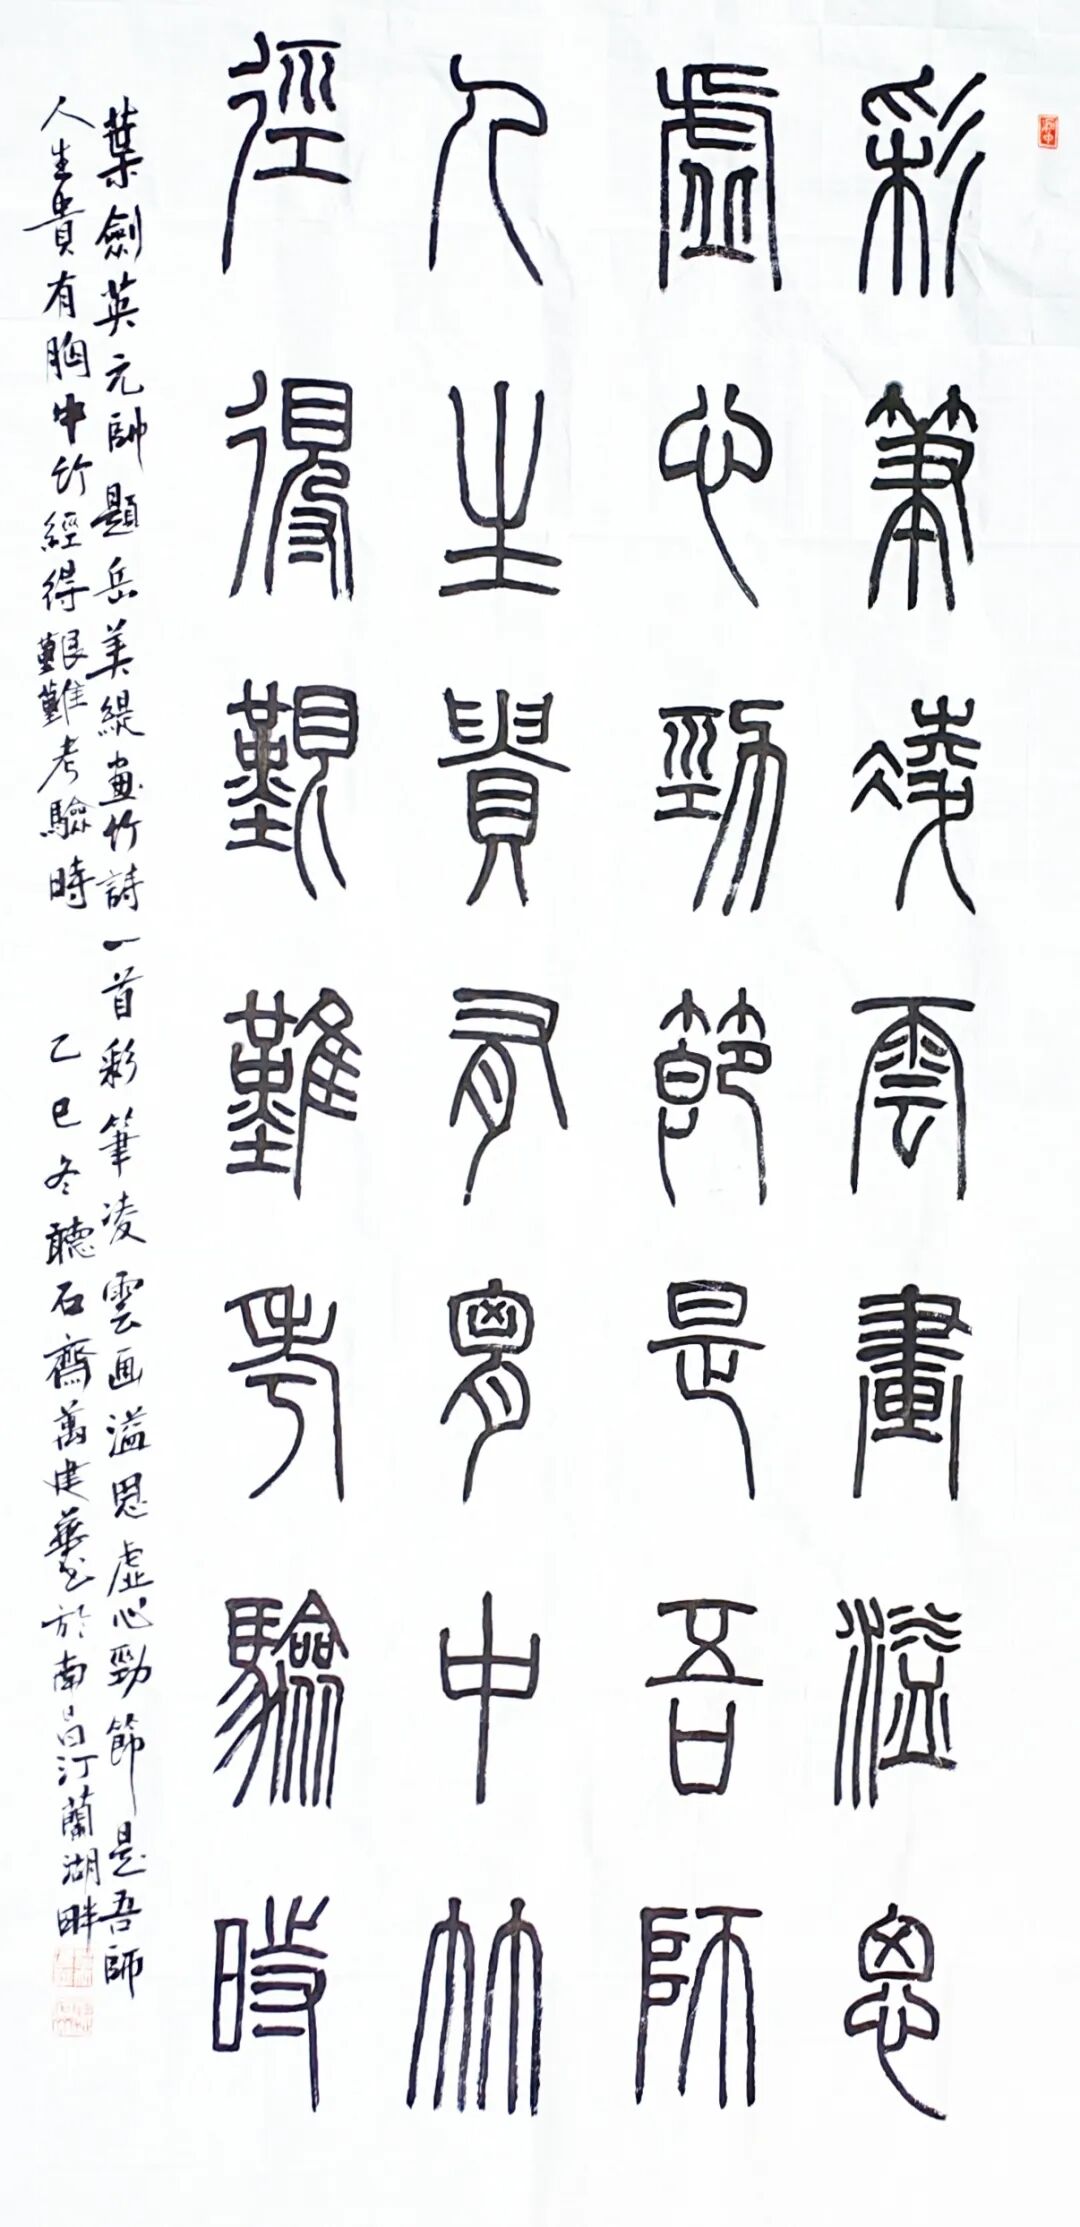 彩筆凌雲畫溢思
虛心勁節是吾師
人生貴有胷中竹
徑得艱難考驗時
葉劍英元帥題岳美緹畫竹詩一首彩筆凌雲画溢思虛心勁節是吾師
人生貴有胸中竹經得艱難考驗時 乙巳冬聽石齋萬建華書於南昌汀蘭湖畔